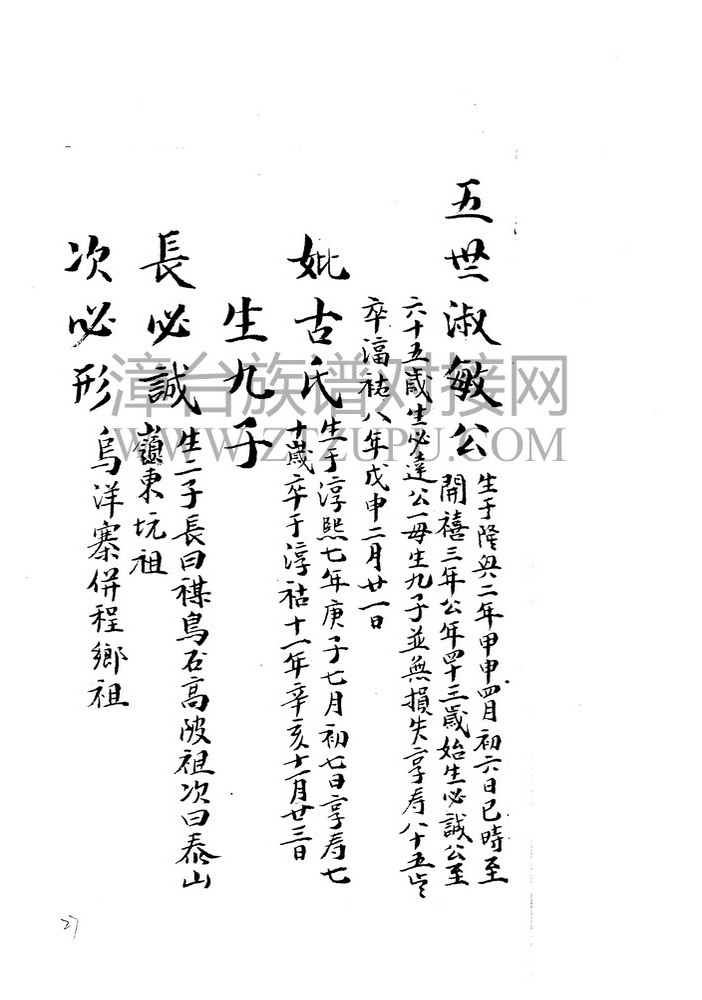 五世淑敏公
生于隆興二年甲申四月初六日巳時至
開禧三年公年四十三歲始生必誠公至
六十五歲生必達公一母生九子並無損失享寿八十五岁
卒淳祐八年戊申二月廿一日
妣古氏
生于淳熙七年庚子七月初七日享寿七
十歲卒于淳祜十一年辛亥十一月廿三日
生九子
長必誠
生二子長曰禖鳥石高陂祖次曰泰山
嶺東坑祖
次必形
烏洋寨併程鄉祖
漳台族谱对接网
WWW.ZTZUPU.COM
27